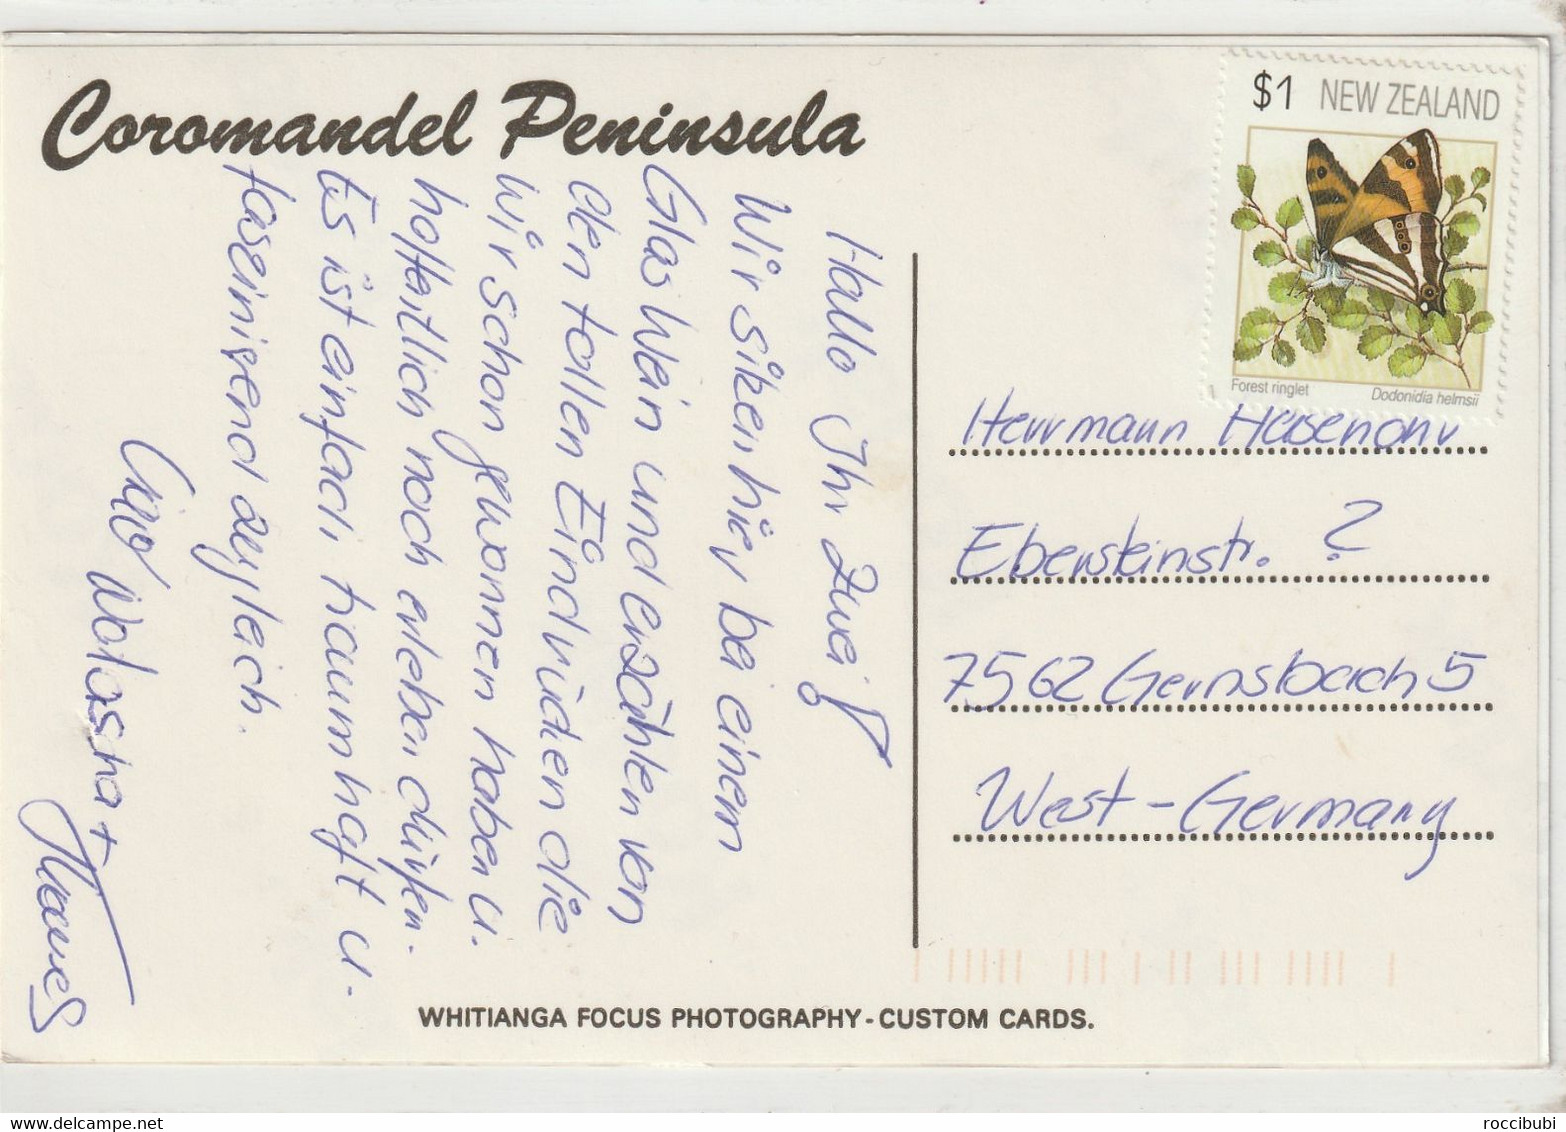 Coromandel Peninsula
$1 NEW ZEALAND
Forest ringlet
Dodonidia helmsii
Hallo Ihr Zwei!
Wir sitzen hier bei einem
Glas Wein und erzählen von
den tollen Eindrücken die
wir schon gewonnen haben u.
hoffentlich noch erleben dürfen.
Es ist einfach traumhaft u.
faszinierend zugleich.
Ciao Natascha +
Herrmann
Ebersteinstr. ?
7562 Gernsbach 5
West-Germany
WHITIANGA FOCUS PHOTOGRAPHY-CUSTOM CARDS.
roccibubi